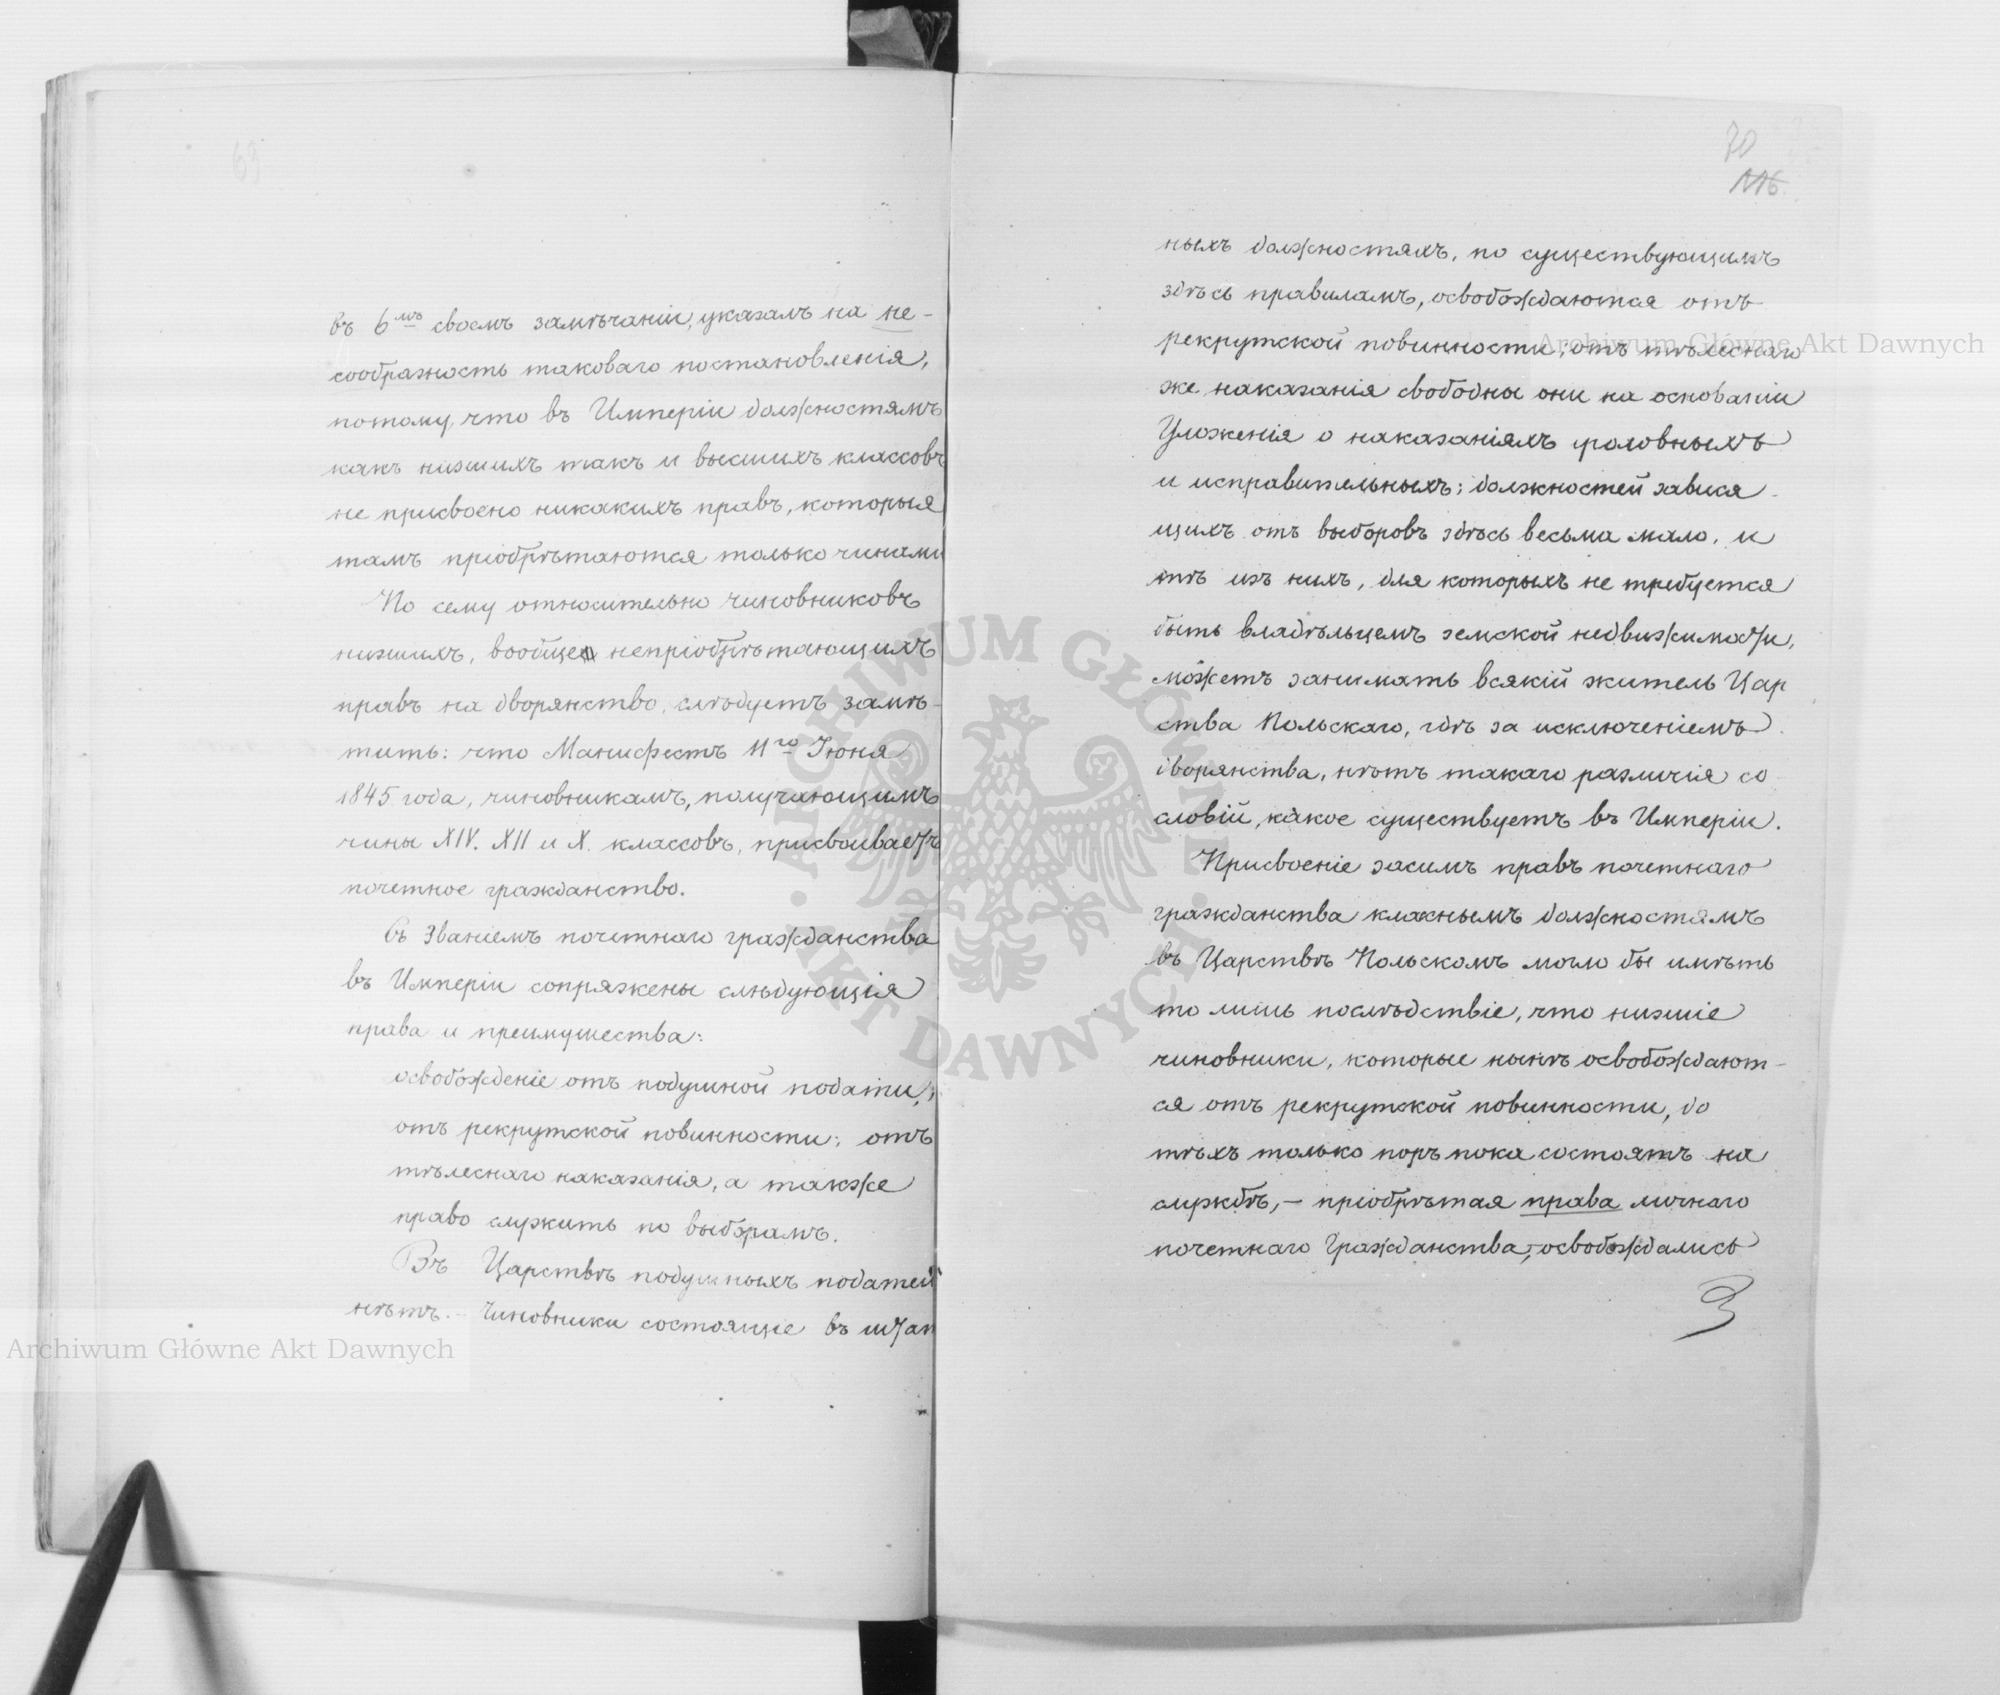 69
въ 6мъ своемъ замѣчаніи, указалъ на не-
сообразность таковаго постановленія,
потому, что въ Имперіи должностямъ
какъ низшихъ такъ и высшихъ классовъ
не присвоено никакихъ правъ, которыя
тамъ пріобрѣтаются только чинами
По сему относительно чиновниковъ
низшихъ, вообще непріобрѣтающихъ
правъ на дворянство, слѣдуетъ замѣ-
тить: что Манифестъ 11го Іюня
1845 года, чиновникамъ, получающимъ
чины XIV. XII и X. классовъ, присвоиваетъ
почетное гражданство.
Съ званіемъ почетнаго гражданства
въ Имперіи сопряжены слѣдующія
права и преимущества:
освобожденіе отъ подушной подати;
отъ рекрутской повинности; отъ
тѣлеснаго наказанія, а также
право служить по выборамъ.
Въ Царствѣ подушныхъ податей
нѣтъ. — Чиновники состоящіе въ штат
70
116.
ныхъ должностяхъ, по существующимъ
здѣсь правиламъ, освобождаются отъ
рекрутской повинности; отъ тѣлеснаго
же наказанія свободны они на основаніи
Уложенія о наказаніяхъ уголовныхъ
и исправительныхъ; должностей завися-
щихъ отъ выборовъ здѣсь весьма мало, и
тѣ изъ нихъ, для которыхъ не требуется
быть владѣльцемъ земской недвижимости,
можетъ занимать всякій житель Цар
ства Польскаго, гдѣ за исключеніемъ
дворянства, нѣтъ такаго различія со
словій, какое существуетъ въ Имперіи.
Присвоеніе засимъ правъ почетнаго
гражданства класнымъ должностямъ
въ Царствѣ Польскомъ могло бы имѣть
то лишь послѣдствіе, что низшіе
чиновники, которые нынѣ освобождают-
ся отъ рекрутской повинности, до
тѣхъ только поръ пока состоятъ на
службѣ, — пріобрѣтая права личнаго
почетнаго гражданства, освобождались
Archiwum Główne Akt Dawnych
Archiwum Główne Akt Dawnych
ARCHIWUM GŁÓWNE AKT DAWNYCH